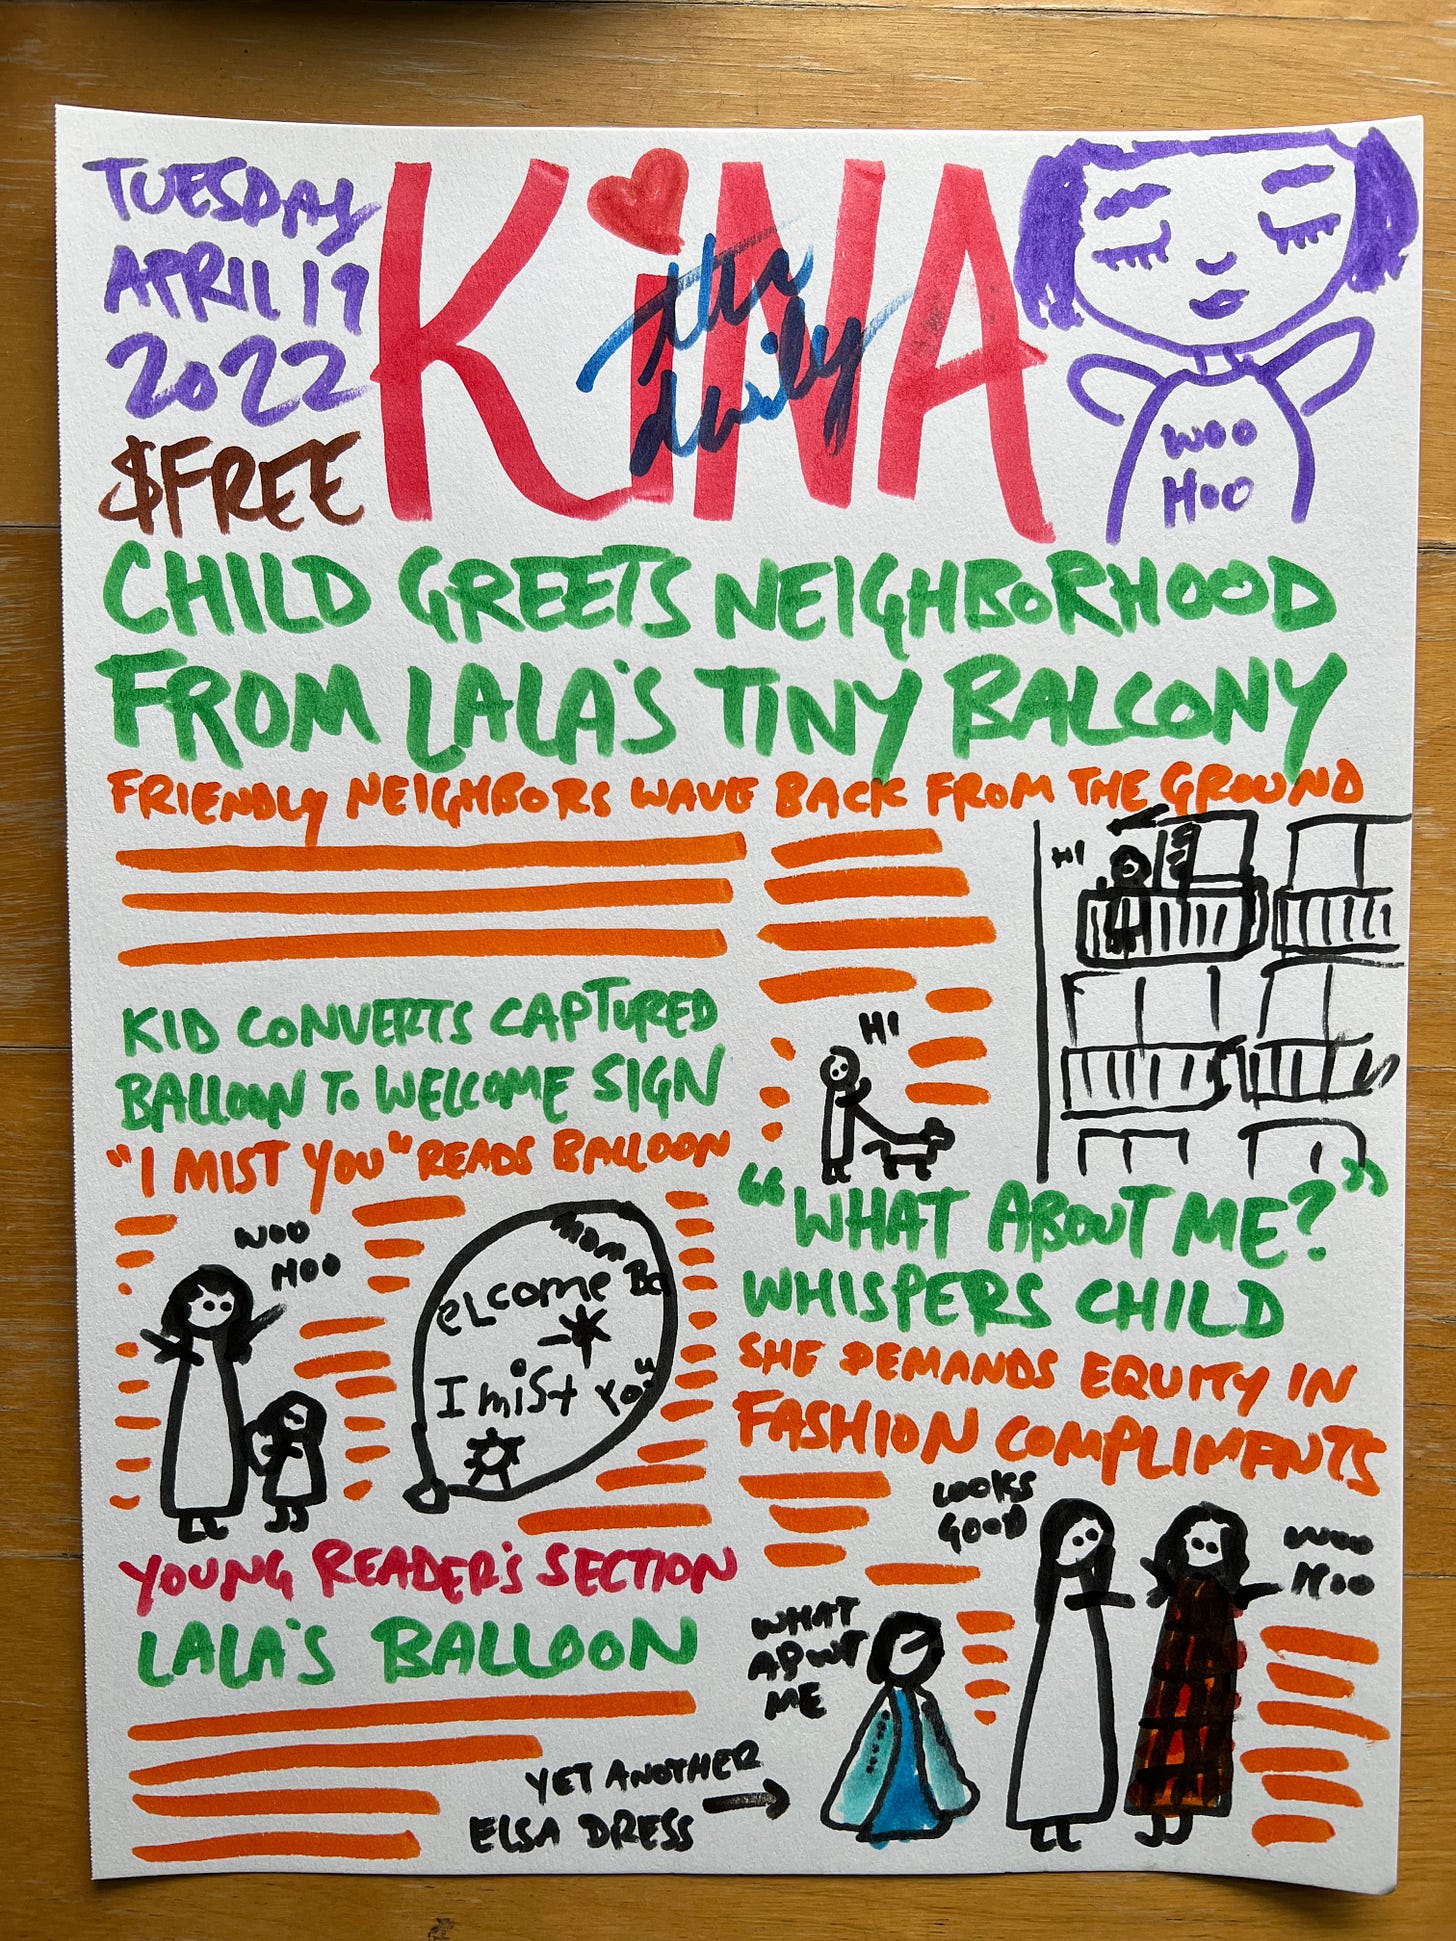 TUESDAY
APRIL 19
2022
$FREE
KiNA
the
daily
WOO
HOO
CHILD GREETS NEIGHBORHOOD
FROM LALA'S TINY BALCONY
FRIENDLY NEIGHBORS WAVE BACK FROM THE GROUND
HI
HI
KID CONVERTS CAPTURED
BALLOON TO WELCOME SIGN
"I MIST YOU" READS BALLOON
WOO
HOO
MOM
eLcome Bc
I miSt You
"WHAT ABOUT ME?"
WHISPERS CHILD
SHE DEMANDS EQUITY IN
FASHION COMPLIMENTS
LOOKS
GOOD
WOO
HOO
WHAT
ABOUT
ME
YOUNG READER'S SECTION
LALA'S BALLOON
YET ANOTHER
ELSA DRESS